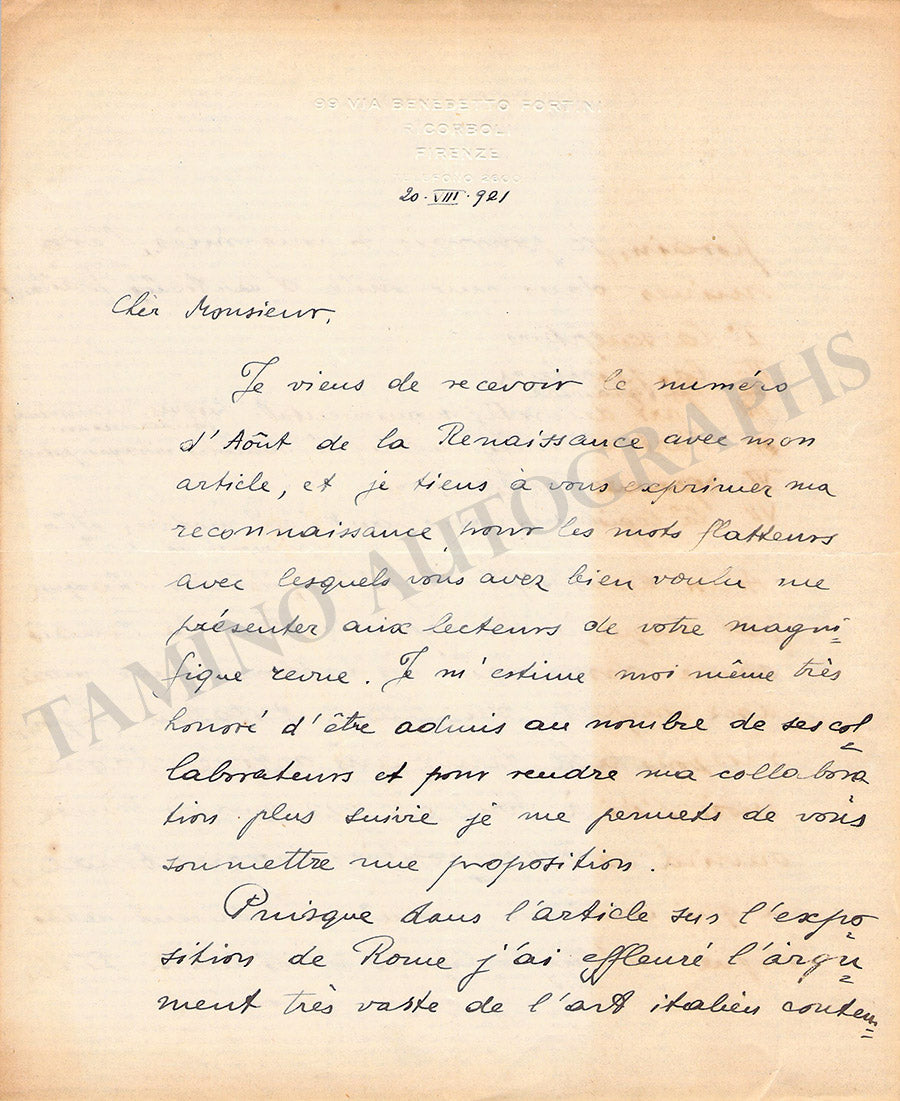 99 VIA BENEDETTO FORTINI
RICORBOLI
FIRENZE
TELEFONO 2600
20·VIII·921
Cher Monsieur,
Je viens de recevoir le numéro
d'Août de la Renaissance avec mon
article, et je tiens à vous exprimer ma
reconnaissance pour les mots flatteurs
avec lesquels vous avez bien voulu me
présenter aux lecteurs de votre magni=
fique revue. Je m'estime moi même très
honoré d'être admis au nombre de ses col=
laborateurs et pour rendre ma collabora=
tion plus suivie je me permets de vous
soumettre une proposition.
Puisque dans l'article sur l'expo=
sition de Rome j'ai effleuré l'argu=
ment très vaste de l'art italien contem=
TAMINO AUTOGRAPHS